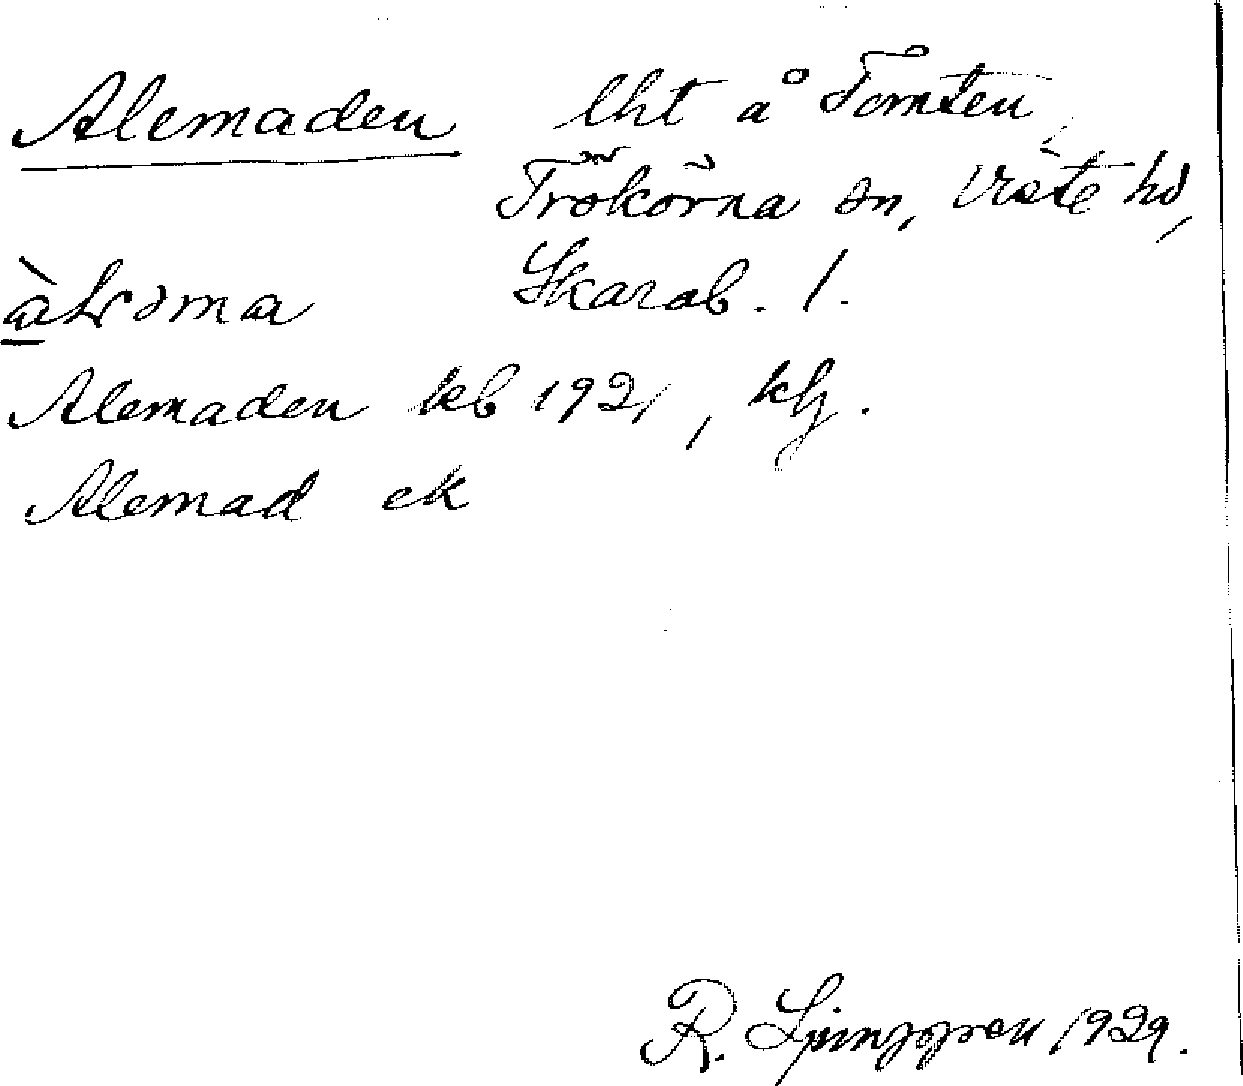 Alemaden lht å Tomten,
Trökörna sn, Viste hd,
Skarab. l.
Alemaden kb 1921, klj.
Alemad ek
R. Ljunggren 1929.